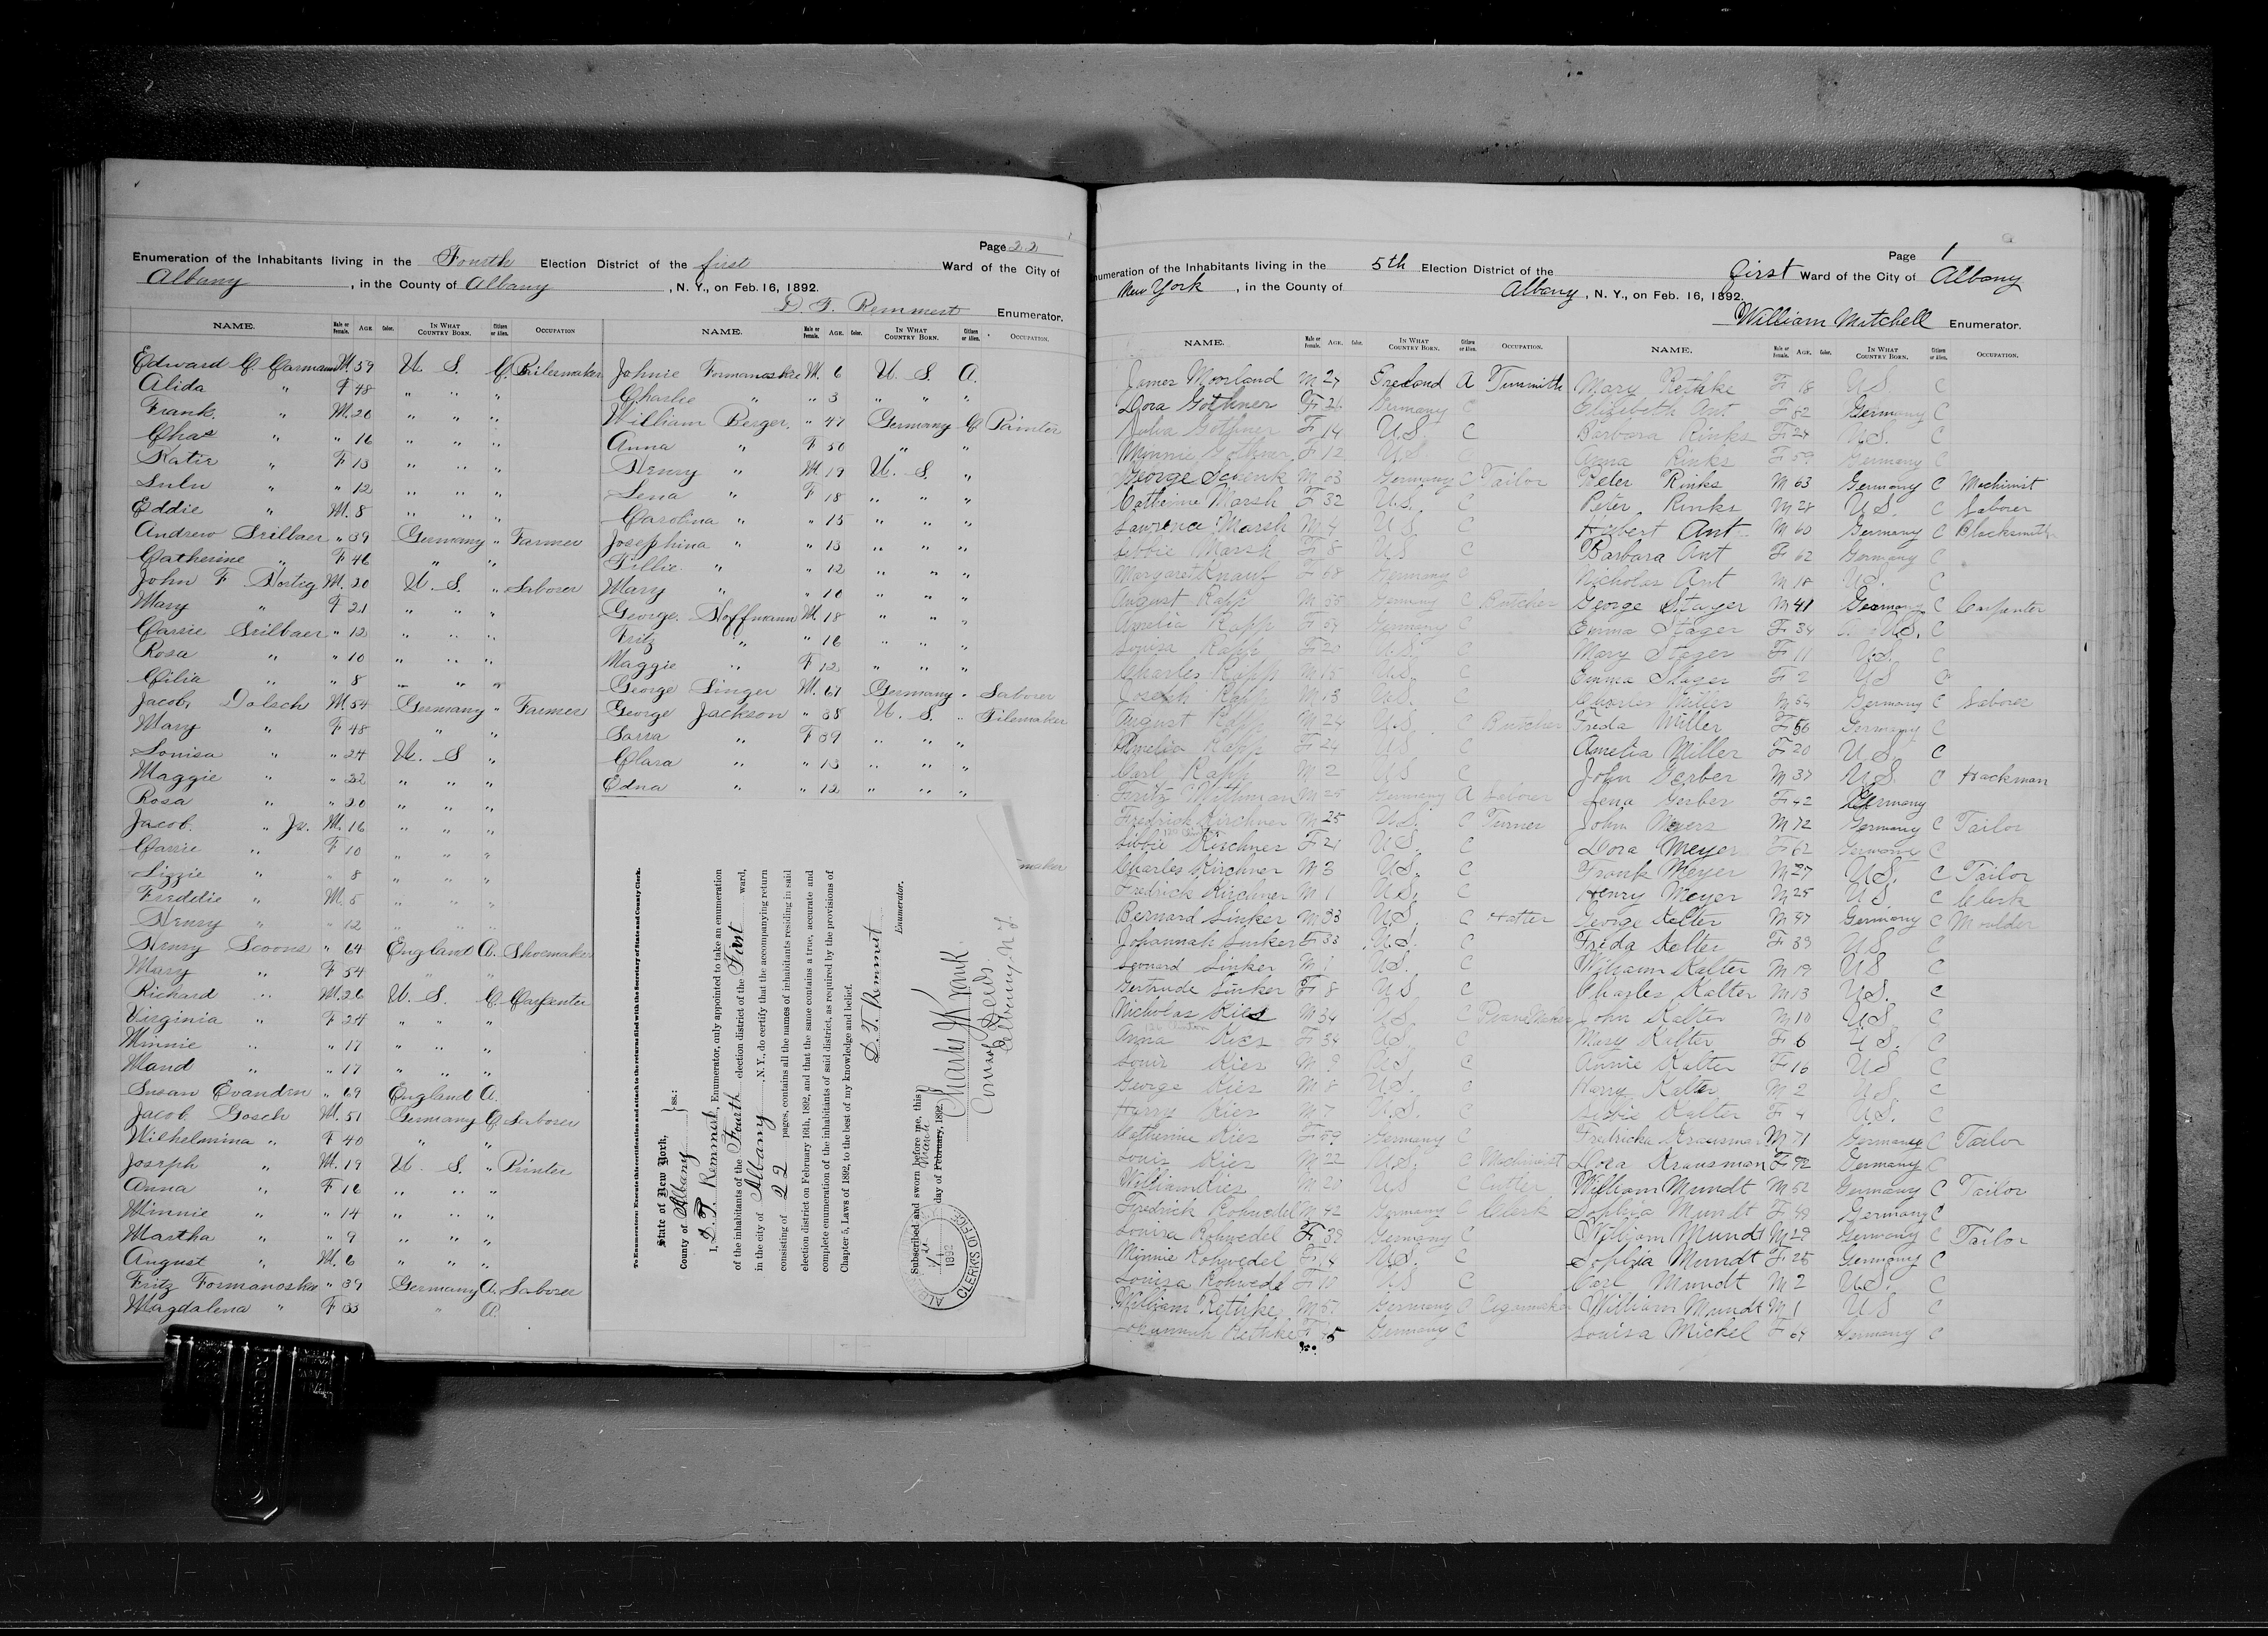 Page 22
Enumeration of the Inhabitants living in the Fourth Election District of the first Ward of the City of
Albany, in the County of Albany, N. Y., on Feb. 16, 1892.
D. T. Remmert Enumerator.
NAME. Male or Female. AGE. Color. IN WHAT COUNTRY BORN. Citizen or Alien. OCCUPATION
Edward C. Carmann M. 59 U. S. C.
Alida " F 48 " " "
Frank. " M. 20 " " "
Chas " " 16 " " "
Katie " F 13 " " "
Lulu " " 12 " " "
Eddie " M. 8 " " "
Andrew Silbaer " 39 Germany " Farmer
Catherine " F 46 " "
John F Hortig M. 20 U. S. " Laborer
Mary " F 21 " " "
Carrie Silbaer " 12 " " "
Rosa " " 10 " " "
Cilia " " 8 " " "
Jacob. Dolsch M. 54 Germany " Farmer
Mary " F 48 " "
Louisa " " 24 U. S "
Maggie " " 22 " " "
Rosa " " 20 " " "
Jacob. " Jr. M. 16 " " "
Carrie " F 10 " " "
Lizzie " " 8 " " "
Fredelie " M. 5 " " "
Henry " " 12 " " "
Henry Scoons " 64 England A. Shoemaker
Mary " F 54 " "
Richard " M. 26 U. S. C. Carpenter
Virginia " F 24 " " "
Minnie " " 17 " " "
Maud " " 17 " " "
Susan Evanden " 69 England A.
Jacob. Gosch M. 51 Germany C. Laborer
Wilhelmina " F 40 " "
Joseph " M. 19 U. S. " Printer
Anna " F 16 " " "
Minnie " " 14 " " "
Martha " " 9 " " "
August " M. 6 " " "
Fritz Formanoskie " 39 Germany A. Laborer
Magdalena " F 33 " A.
NAME. Male or Female. AGE. Color. IN WHAT COUNTRY BORN. Citizen or Alien. OCCUPATION.
Johnie Formanoskie M. 6 U. S. A.
Charlie " " 3 " " "
William Berger. " 47 Germany C. Painter
Anna " F 50 " "
Henry " M 19 U. S. "
Lena " F 18 " " "
Carolina " " 15 " " "
Josephina " " 13 " " "
Tillie. " " 12 " " "
Mary " " 10 " " "
George. Hoffmann M. 18 " " "
Fritz " " 16 " " "
Maggie " F 12 " " "
George Singer M. 61 Germany " Laborer
George Jackson " 38 U. S. " Filemaker
Sarra " F 39 " " "
Clara " " 13 " " "
Edna " " 12 " " "
maker
To Enumerators: Execute this certification and attach to the returns filed with the Secretary of State and County Clerk.
State of New York,
County of Albany } ss.:
I, D. T. Remmert, Enumerator, duly appointed to take an enumeration
of the inhabitants of the Fourth election district of the First ward,
in the city of Albany, N. Y., do certify that the accompanying return
consisting of 22 pages, contains all the names of inhabitants residing in said
election district on February 16th, 1892, and that the same contains a true, accurate and
complete enumeration of the inhabitants of said district, as required by the provisions of
Chapter 5, Laws of 1892, to the best of my knowledge and belief.
D. T. Remmert
Enumerator.
Subscribed and sworn before me, this
1st day of February, 1892. March
Comr of Deeds.
Albany N Y.
1892
CLERK'S OFFICE
Page 1
Enumeration of the Inhabitants living in the 5th Election District of the first Ward of the City of Albany
New York, in the County of Albany, N. Y., on Feb. 16, 1892.
William Mitchell Enumerator.
NAME. Male or Female. AGE. Color. IN WHAT COUNTRY BORN. Citizen or Alien. OCCUPATION.
James Moorland M 27 Ireland A Tinsmith
Dora Gothner F 26 Germany C
Julia Gothner F 14 U.S. C
Minnie Gothner F 12 U.S. C
George Schenk M 63 Germany C Tailor
Catherine Marsh F 32 U.S. C
Lawrence Marsh M 4 U.S. C
Libbie Marsh F 8 US C
Margaret Knauf F 68 Germany C
August Rapp M 55 Germany C Butcher
Amelia Rapp F 54 Germany C
Louisa Rapp F 20 U.S. C
Charles Rapp M 15 U.S. C
Joseph Rapp M 13 U.S. C
August Rapp M 24 U.S. C Butcher
Amelia Rapp F 24 US C
Carl Rapp M 2 US C
Fritz M 25 Germany A Laborer
Fredrick Kirchner M 25 U.S. C Turner
Libbie Kirchner F 21 U.S. C
Charles Kirchner M 3 U.S. C
Fredrick Kirchner M 1 U.S. C
Bernard Linker M 33 U.S. C Hatter
Johannah Linker F 33 U.S. C
Bernard Linker M 1 U.S. C
Gertrude Linker F 8 U.S C
Nicholas Kies M 34 U.S C Piano Maker
Anna Kies F 34 U.S. C
Louis Kies M 9 U.S. C
George Kies M 8 U.S. C
Harry Kies M 7 U.S. C
Catherine Kies F 59 Germany C
Louis Kies M 22 U.S. C Machinist
William Kies M 20 US C Cutler
Fredrick Rohwedel M 42 Germany C Clerk
Louisa Rohwedel F 39 Germany C
Minnie Rohwedel F 14 U.S. C
Louisa Rohwedel F 10 US C
William Rethke M 57 Germany C Cigarmaker
Johannah Rethke F 45 Germany C
NAME. Male or Female. AGE. Color. IN WHAT COUNTRY BORN. Citizen or Alien. OCCUPATION.
Mary Rethke F 18 US C
Elizabeth Ant F 82 Germany C
Barbara Rinks F 24 U.S. C
Anna Rinks F 59 Germany C
Peter Rinks M 63 Germany C Machinist
Peter Rinks M 28 U.S. C Laborer
Hubert Ant M 60 Germany C Blacksmith
Barbara Ant F 62 Germany C
Nicholas Ant M 18 U.S. C
George Stager M 41 Germany C Carpenter
Emma Stager F 34 U.S. C
Mary Stager F 11 U.S. C
Emma Stager F 2 US C
Charles Miller M 54 Germany C Laborer
Freda Miller F 56 Germany C
Amelia Miller F 20 U.S. C
John Gerber M 37 U.S. C Hackman
Lena Gerber F 42 Germany
John Meyers M 72 Germany C Tailor
Dora Meyer F 62 Germany C
Frank Meyer M 27 U.S. C Tailor
Henry Meyer M 25 U.S. C Clerk
George Kelter M 37 Germany C Moulder
Freda Kelter F 39 US C
William Kalter M 19 US C
Charles Kalter M 13 U.S. C
John Kalter M 10 US C
Mary Kalter F 6 U.S. C
Annie Kalter F 16 US C
Harry Kalter M 2 US C
Libbie Kalter F 4 U.S. C
Fredricka Krausman M 71 Germany C Tailor
Dora Krausman F 72 Germany C
William Mundt M 52 Germany C Tailor
Sophia Mundt F 49 Germany C
William Mundt M 29 Germany C Tailor
Sophia Mundt F 25 Germany C
Carl Mundt M 2 U.S. C
William Mundt M 1 US C
Louisa Michel F 64 Germany C